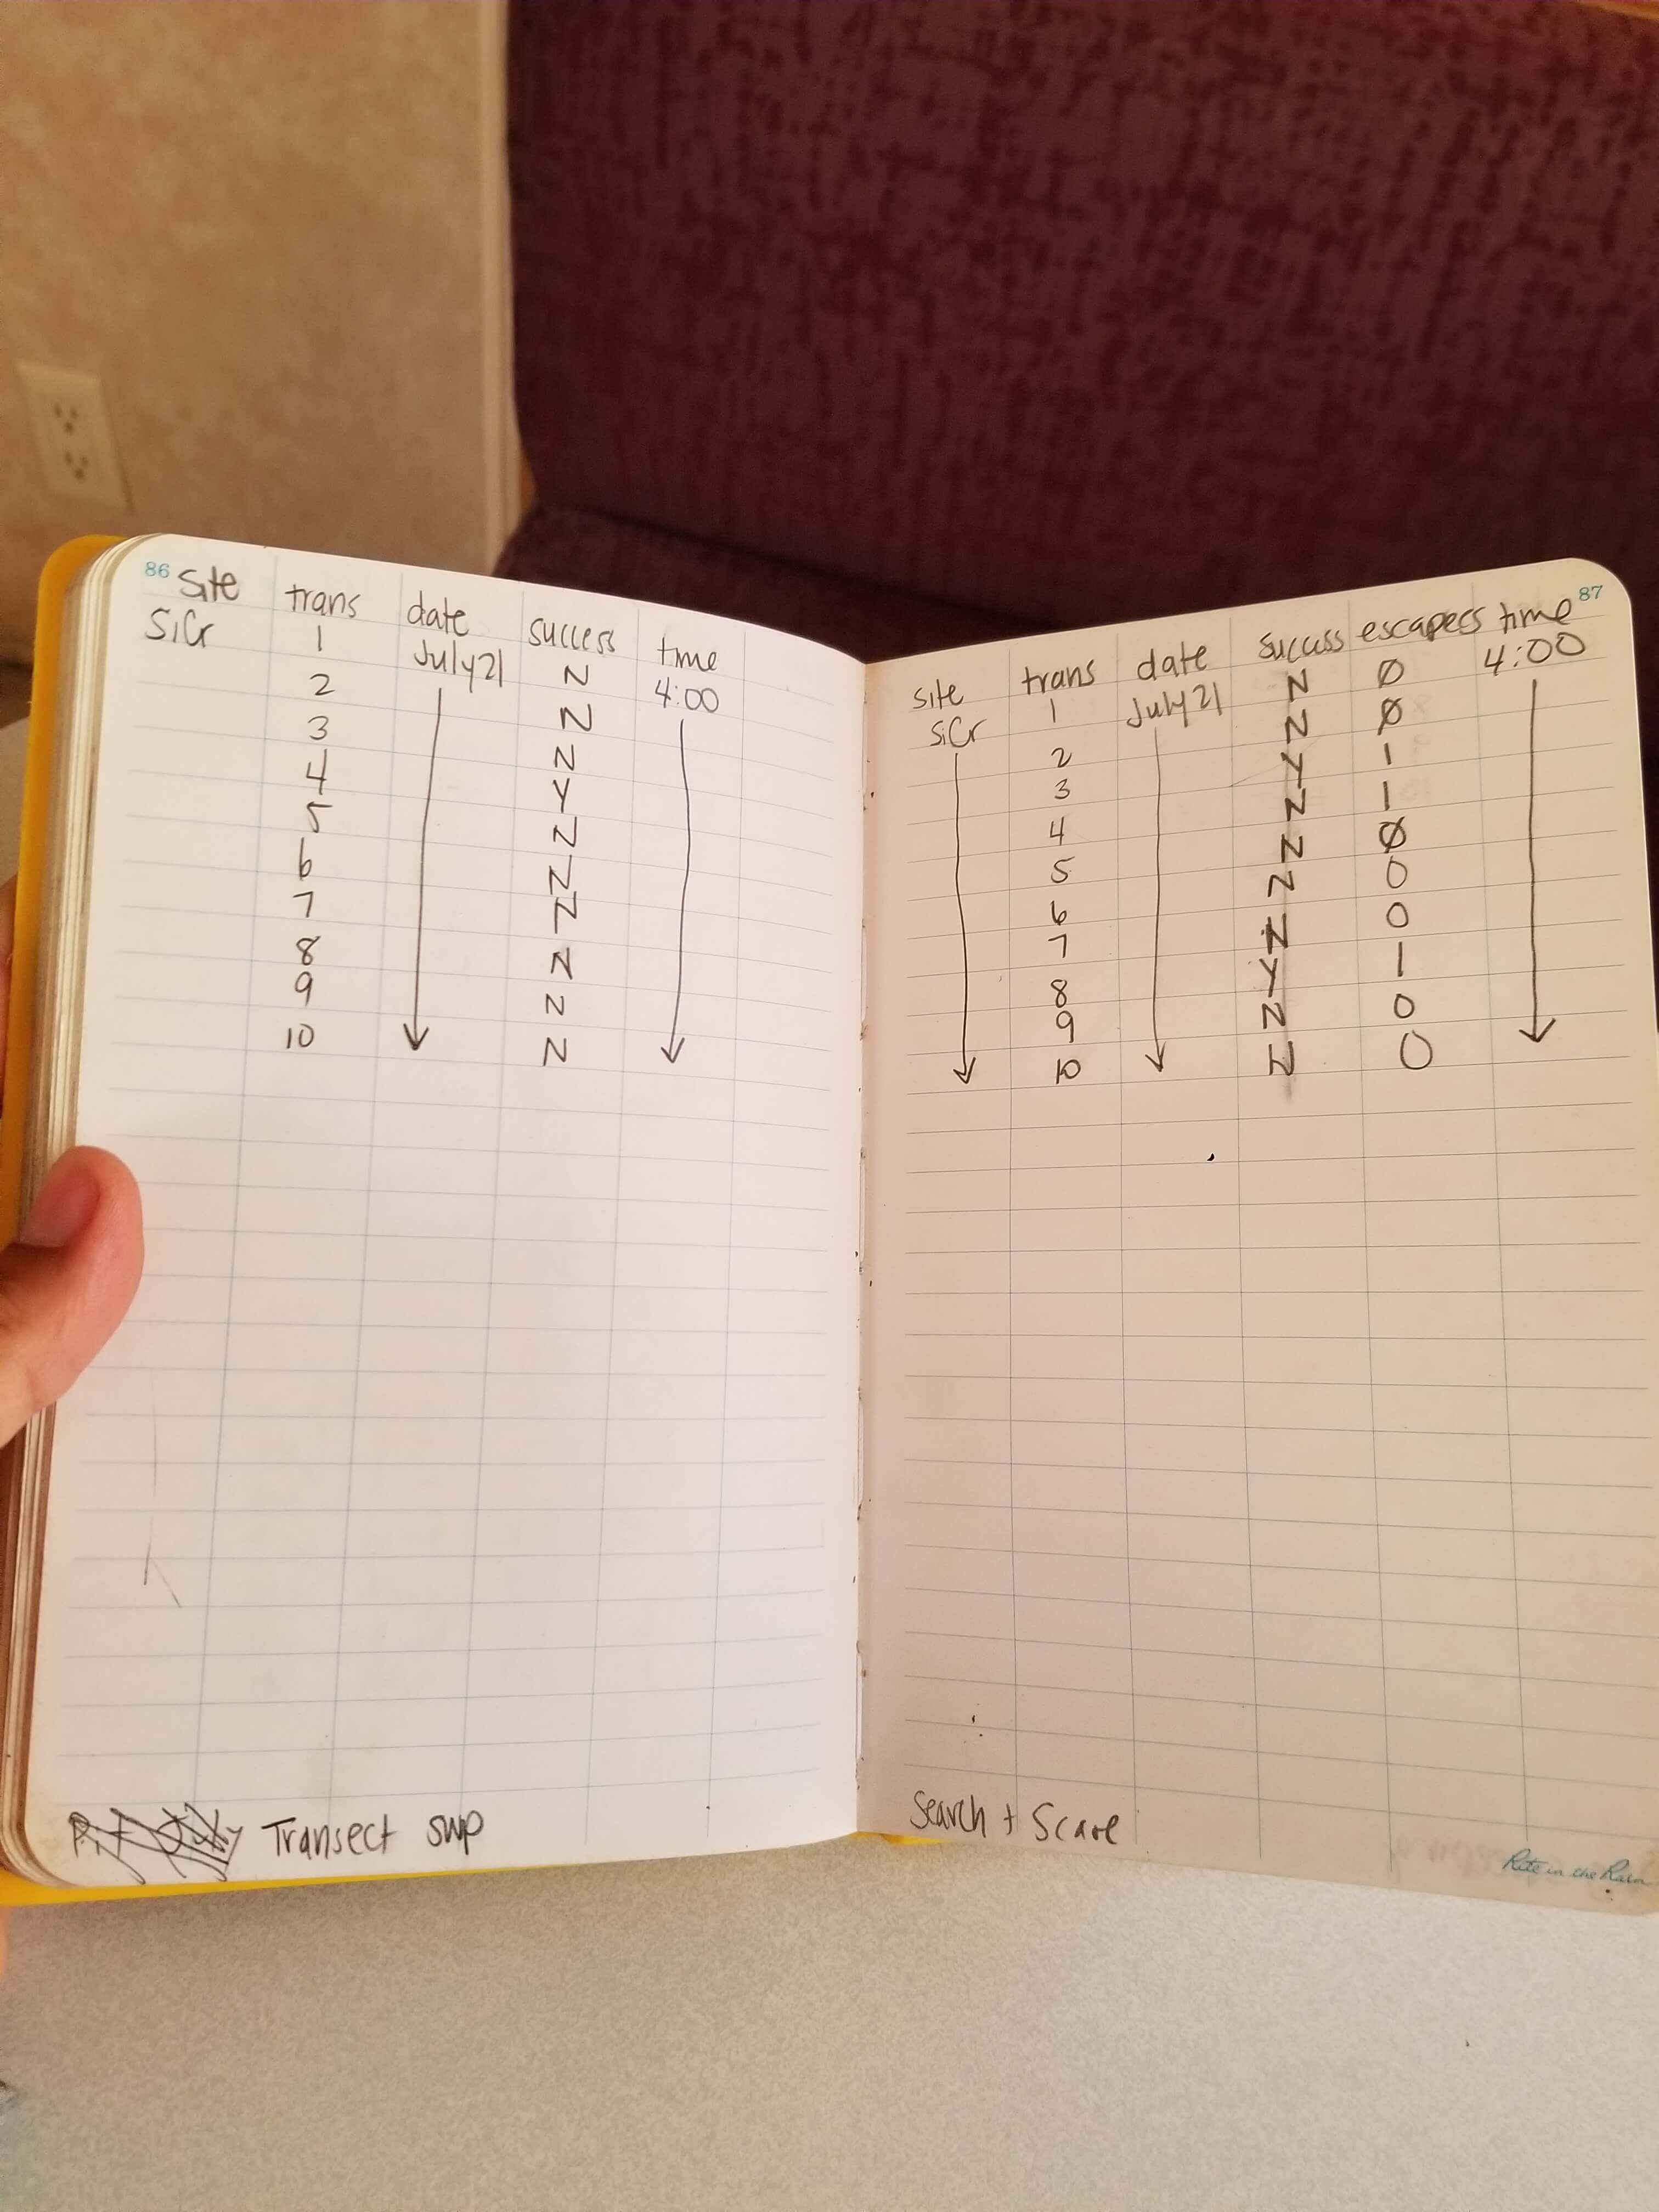 86 Site trans date success time
SiCr 1 July 21 N 4:00
2 N
3 N
4 Y
5 N
6 N
7 N
8 N
9 N
10 N
Transect swp
site trans date success escapees time 87
SiCr 1 July 21 N Ø 4:00
2 N Ø
3 Y 1
4 N 1
5 N Ø
6 N 0
7 N 0
8 Y 1
9 N 0
10 N 0
Search + Scare
Rite in the Rain